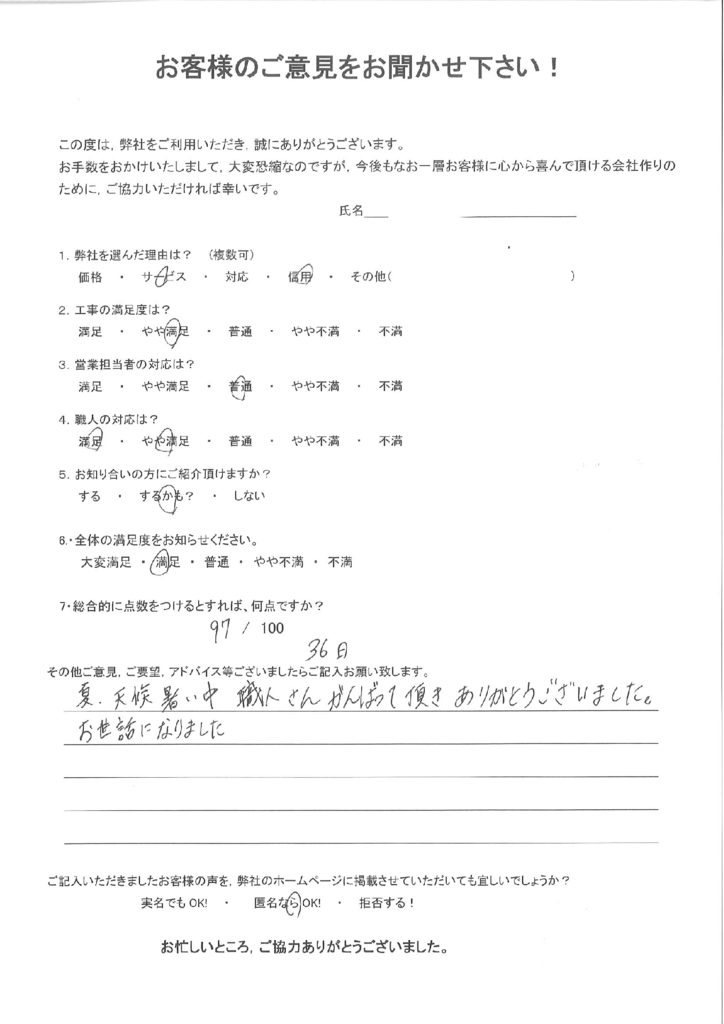 お客様のご意見をお聞かせ下さい！
この度は，弊社をご利用いただき，誠にありがとうございます。
お手数をおかけいたしまして，大変恐縮なのですが，今後もなお一層お客様に心から喜んで頂ける会社作りの
ために，ご協力いただければ幸いです。
氏名
1．弊社を選んだ理由は？　（複数可）
価格　・　サービス　・　対応　・　信用　・　その他（　）
2．工事の満足度は？
満足　・　やや満足　・　普通　・　やや不満　・　不満
3．営業担当者の対応は？
満足　・　やや満足　・　普通　・　やや不満　・　不満
4．職人の対応は？
満足　・　やや満足　・　普通　・　やや不満　・　不満
5．お知り合いの方にご紹介頂けますか？
する　・　するかも？　・　しない
6.・全体の満足度をお知らせください。
大変満足　・　満足　・　普通　・　やや不満　・　不満
7・総合的に点数をつけるとすれば、何点ですか？
97 / 100
36日
その他ご意見，ご要望，アドバイス等ございましたらご記入お願い致します。
夏、天候暑い中　職人さんがんばって頂きありがとうございました。
お世話になりました
ご記入いただきましたお客様の声を，弊社のホームページに掲載させていただいても宜しいでしょうか？
実名でもOK!　・　匿名ならOK!　・　拒否する！
お忙しいところ，ご協力ありがとうございました。